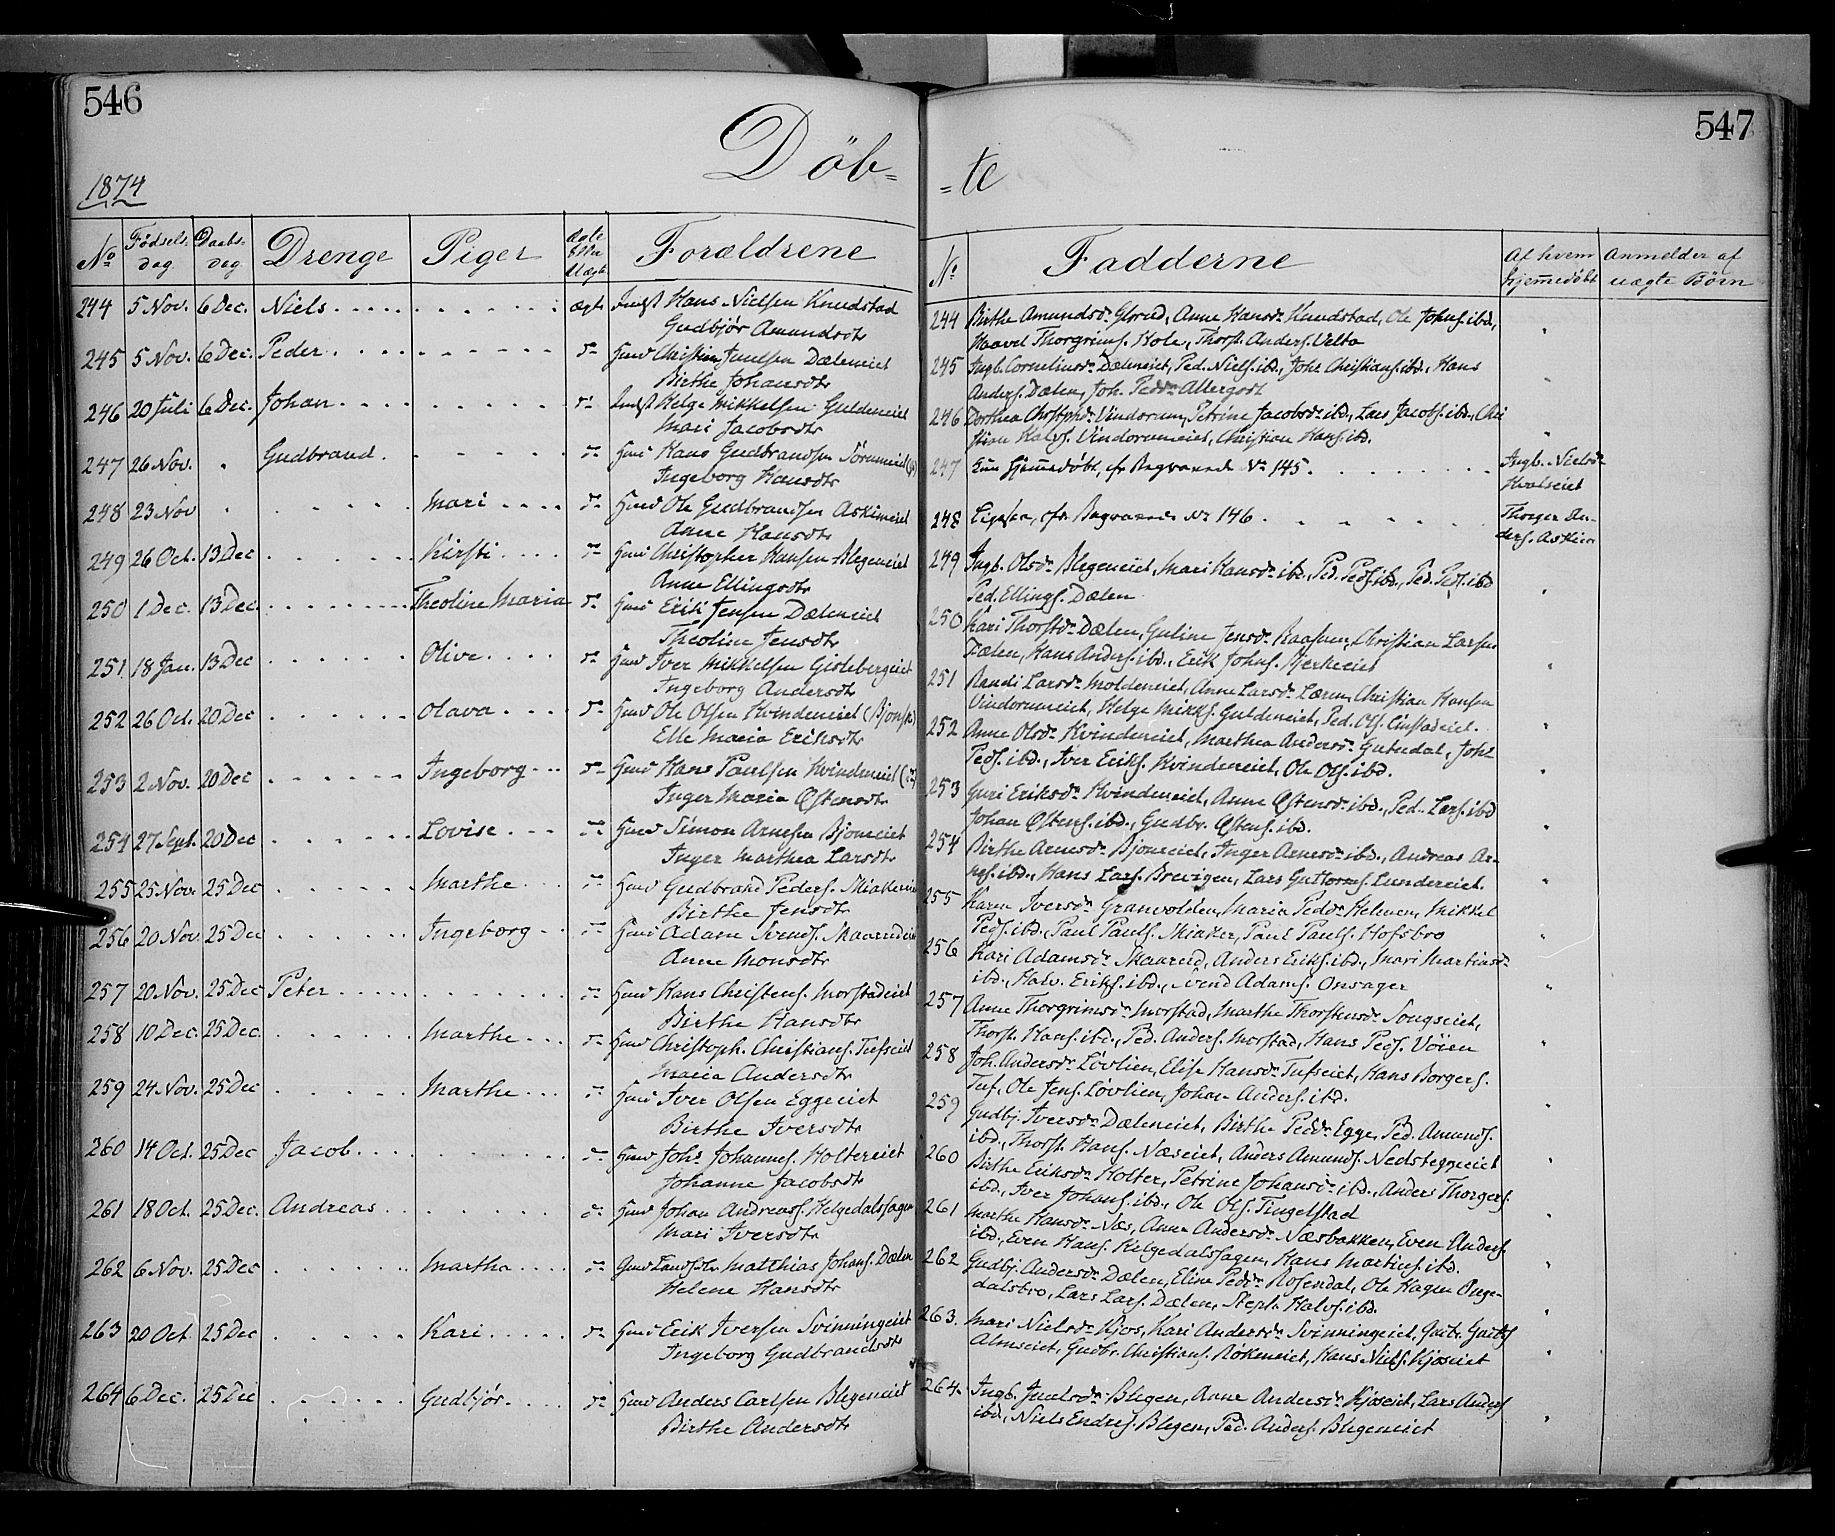 546
547
Döb=
=te
1874
No Fødsels- dag Daabs- dag Drenge Piger Ægte Eller Uægt Forældrene
No Fadderne Af hvem hjemmedøbt Anmelder af uægte Børn
244 5 Nov. 6 Dec. Niels ægte Indst Hans Nielsen Knudstad
Gudbjør Amundsdtr
245 5 Nov. 6 Dec. Peder Huusm Christian Dæleneiet
Birthe Johansdtr
246 20 Juli 6 Dec. Johan Indst Helge Mikkelsen Guldeneiet
Mari Jacobsdtr
247 26 Nov. Gudbrand Hans Gudbrandsen
Ingeborg Hansdtr
248 23 Nov Mari Ole Gudbrandsen Askimeiet
Anne Hansdtr
249 26 Oct. 13 Dec Kirsti Christopher Hansen Blegeneiet
Anne Ellingsdtr
250 1 Dec. 13 Dec. Theoline Maria Erik Jensen Dæleneiet
Theoline Jensdtr
251 18 Jan. 13 Dec Olive Iver Mikkelsen Gislebergeiet
Ingeborg Andersdtr
252 26 Oct. 20 Dec Olava Ole Olsen Hvindeneiet
Elle Maria Eriksdtr
253 2 Nov. 20 Dec Ingeborg Hans Paulsen Hvindeneiet
Inger Maria Østensdtr
254 27 Sept. 20 Dec Lovise Simon Arnesen Bjoneiet
Inger Marthea Larsdtr
255 25 Nov. 25 Dec Marthe Gudbrand Peders.
Birthe Jensdtr
256 20 Nov 25 Dec Ingeborg Adam Svends.
Anne Monsdtr
257 20 Nov. 25 Dec Peter Hans Christens. Morstadeiet
Birthe Hansdtr
258 10 Dec. 25 Dec. Marthe Christoph. Christians. Tufseiet
Maria Andersdtr
259 24 Nov. 25 Dec Marthe Iver Olsen Eggeeiet
Birthe Iversdtr
260 14 Oct. 25 Dec Jacob Johs Johannes. Holtereiet
Johanne Jacobsdtr
261 18 Oct. 25 Dec. Andreas Johan Andreass. Helgedalssagen
Mari Iversdtr
262 6 Nov. 25 Dec Martha Matthias Johans. Dælen
Helene Hansdtr
263 20 Oct. 25 Dec Kari Erik Iversen Svinningeiet
Ingeborg Gudbrandsdtr
264 6 Dec. 25 Dec Gudbjør Anders Carlsen Blegeneiet
Birthe Andersdtr
244 Birthe Amundsdr Glorud, Anne Hansdr Knudstad, Ole Johns. ibd.,
Haavel Thorgrims. Hole, Thorst. Anders. Velta
245 Ingb. Corneliusdr Dæleneiet, Ped. Niels. ibd., Johs Christians. ibd., Hans
Anders. Dælen, Joh. Peddr
246 Dorthea Vindorum, Petrine Jacobsdr ibd., Lars Jacobs. ibd., Chri
stian Halvs. Vindorumeiet, Christian Hans. ibd.
247 Kun hjemmedøbt, cfr No 145. Ingb. Nielsdr
Hvalseiet
248 Ligesaa, cfr No 146. Thorger An-
ders. Askim
249 Ingb. Olsdr Blegeneiet, Mari Hansdr ibd., Ped. Peds. ibd., Ped. Peds. ibd
Ped. Ellings. Dælen
250 Kari Thorstdr Dælen, Guline Jensdr Raasum, Christian Larsen
Dælen, Hans Anders. ibd., Erik Johns. Bjerkeeiet
251 Randi Larsdr Moldeneiet, Anne Larsdr Læren, Christian Hansen
Vindorumeiet, Helge Mikks. Guldeneiet, Ped. Ols.
252 Anne Olsdr Hvindeneiet, Marthea Andersdr Gutudal, Johs
Peds. ibd., Iver Eriks. Hvindeneiet, Ole Ols. ibd.
253 Guri Eriksdr Hvindeneiet, Anne Østensdr ibd., Ped. Lars. ibd
Johan Østens. ibd., Gudbr. Østens. ibd.
254 Birthe Arnesdr Bjoneiet, Inger Arnesdr ibd., Andreas Ar-
nes. ibd., Hans Lars. Brevigen, Lars Guttorms. Lundereiet.
255 Karen Iversdr Granvolden, Maria Peddr Helmen, Mikkel
Peds. ibd., Paul Pauls. Skiaker, Paul Pauls. Hofsbro
256 Kari Adamsdr Skaarud, Anders Eriks. ibd., Mari Martinsdr
ibd., Halv. Eriks. ibd., Svend Adams. Onsager
257 Anne Thorgrimsdr Morstad, Marthe Thorstensdr Songseiet,
Thorst. Hans. ibd., Ped. Anders. Morstad, Hans Peds. Vøien
258 Joh. Andersdr Løvlien, Elise Hansdr Tufseiet, Hans Borgers.
Tuf, Ole Jens. Løvlien, Johan Anders. ibd.
259 Gudbj. Iversdr Dæleneiet, Birthe Peddr Egge, Ped. Amunds.
ibd., Thorst. Hans. Næseiet, Anders Amunds. Nedsteggeeiet
260 Birthe Eriksdr Holter, Petrine Johansdr ibd., Anders Thorgers.
ibd., Iver Johans. ibd., Ole Ols. Tingelstad
261 Marthe Hansdr Næs, Anne Andersdr Næsbakken, Even Anders
ibd., Even Hans. Helgedalssagen, Hans Martins. ibd.
262 Gudbj. Andersdr Dælen, Eline Peddr Rosendal, Ole Hagen
dalsbro, Lars Lars. Dælen, Steph. Halvs. ibd.
263. Mari Nielsdr Kjos, Kari Andersdr Svinningeiet,
Almseiet, Gudbr. Christians. Røkeneiet, Hans Niels. Kjoseiet
264. Ingb. Blegen, Anne Andersdr Kjoseiet, Lars Anders
ibd., Niels Endres. Blegen, Ped. Anders. Blegeneiet